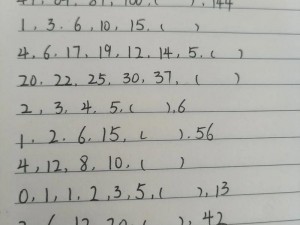 81, 100, ( ), 144
1, 3, 6, 10, 15, ( )
4, 6, 17, 19, 12, 14, 5, ( )
20, 22, 25, 30, 37, ( )
2, 3, 4, 5, ( ), 6
1, 2, 6, 15, ( ), 56
4, 12, 8, 10, ( )
0, 1, 1, 2, 3, 5, ( ), 13
2, 6, 12, 20, ( ), 42